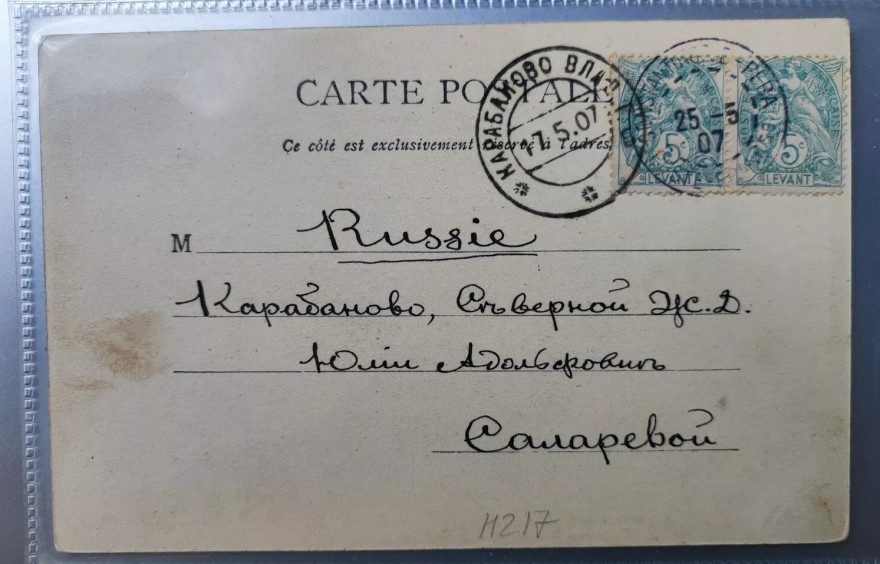 CARTE POSTALE
Ce côté est exclusivement réservé à l'adres
КАРАБАНОВО ВЛАД. Г.
17.5.07
CONSTANTINOPLE PERA
25 - 5
07
5c
LEVANT
5c
LEVANT
M Russie
Карабаново, Съверной Ж.Д.
Юліи Адольфовнъ
Саларевой
H217